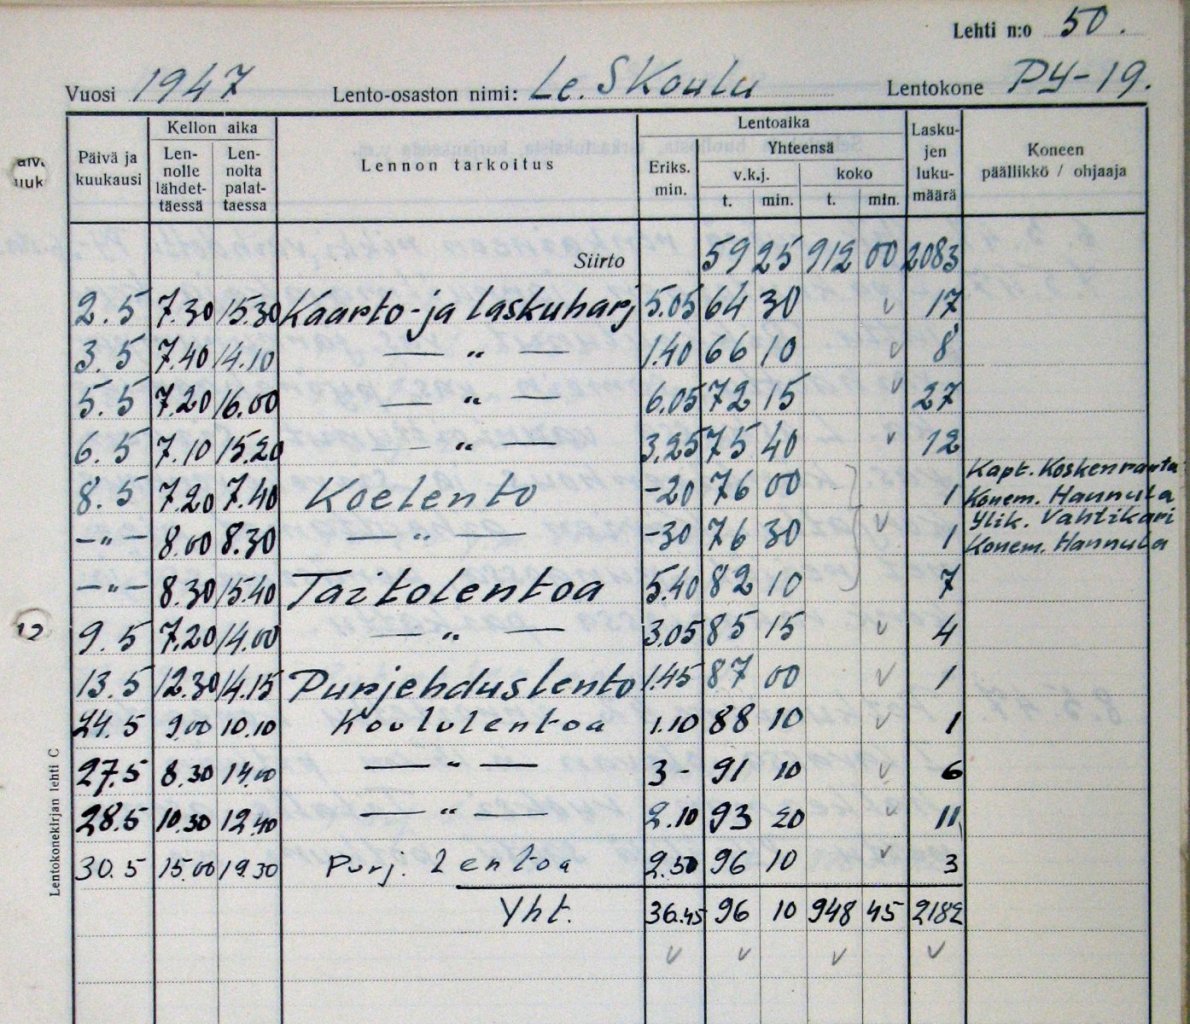 Lehti n:o 50.
Vuosi 1947 Lento-osaston nimi: Le. SKoulu Lentokone PY-19.
Päivä ja kuukausi Kellon aika Lennon tarkoitus Lentoaika Lasku-jen luku-määrä Koneen päällikkö / ohjaaja
Len-nolle lähdet-täessä Len-nolta palat-taessa Eriks. min. Yhteensä
v.k.j. koko
t. min. t. min.
Siirto 59 25 912 00 2083
2.5 7.30 15.30 Kaarto- ja laskuharj 5.05 64 30 ✓ 17
3.5 7.40 14.10 — " — 1.40 66 10 ✓ 8
5.5 7.20 16.00 — " — 6.05 72 15 ✓ 27
6.5 7.10 15.20 — " — 3.25 75 40 ✓ 12
8.5 7.20 7.40 Koelento -20 76 00 1 Kapt. Koskenranta
Konem. Hannula
— " — 8.00 8.30 — " — -30 76 30 ✓ 1 Ylik. Vahtikari
Konem. Hannula
— " — 8.30 15.40 Tartolentoa 5.40 82 10 7
9.5 7.20 14.00 — " — 3.05 85 15 ✓ 4
13.5 12.30 14.15 Purjehduslento 1.45 87 00 ✓ 1
24.5 9.00 10.10 Koululentoa 1.10 88 10 ✓ 1
27.5 8.30 14.00 — " — 3 - 91 10 ✓ 6
28.5 10.30 12.40 — " — 2.10 93 20 ✓ 11
30.5 15.00 19.30 Purj. Lentoa 2.50 96 10 ✓ 3
Yht. 36.45 96 10 948 45 2182
✓ ✓ ✓ ✓
Lentokonekirjan lehti C
12